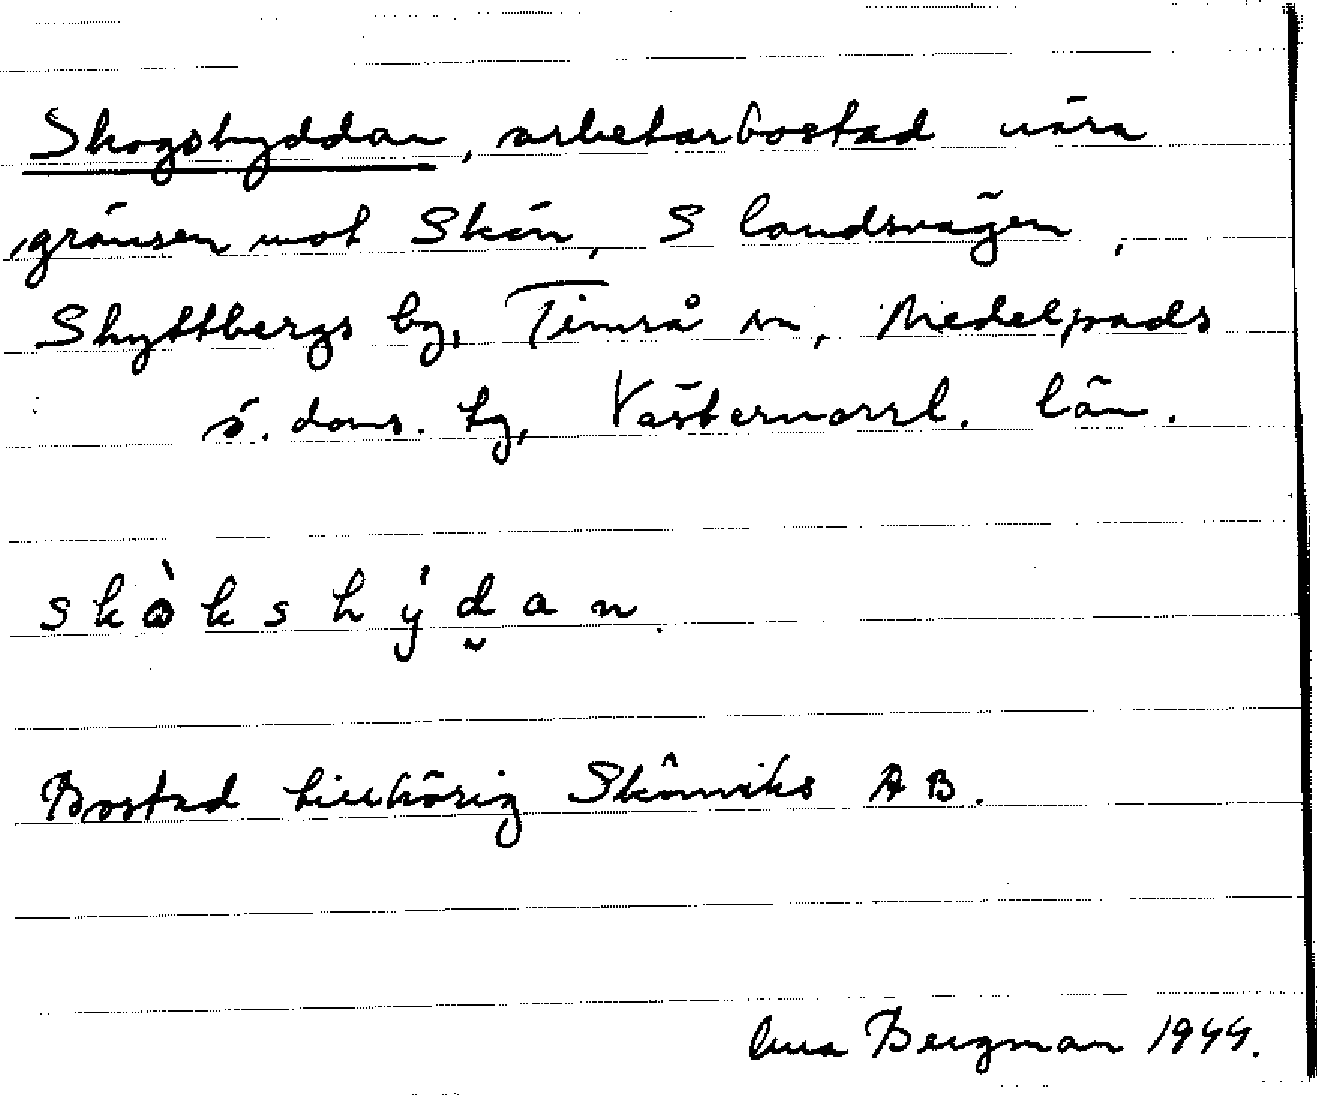 Skogshyddan, arbetarbostad nära
gränsen mot Skön, S landsvägen,
Skyttbergs by, Timrå sn, Medelpads
ö. doms. hg, Västernorrl. län.
skòkshýd̮an.
Bostad tillhörig Skönviks AB.
Bergman 1944.